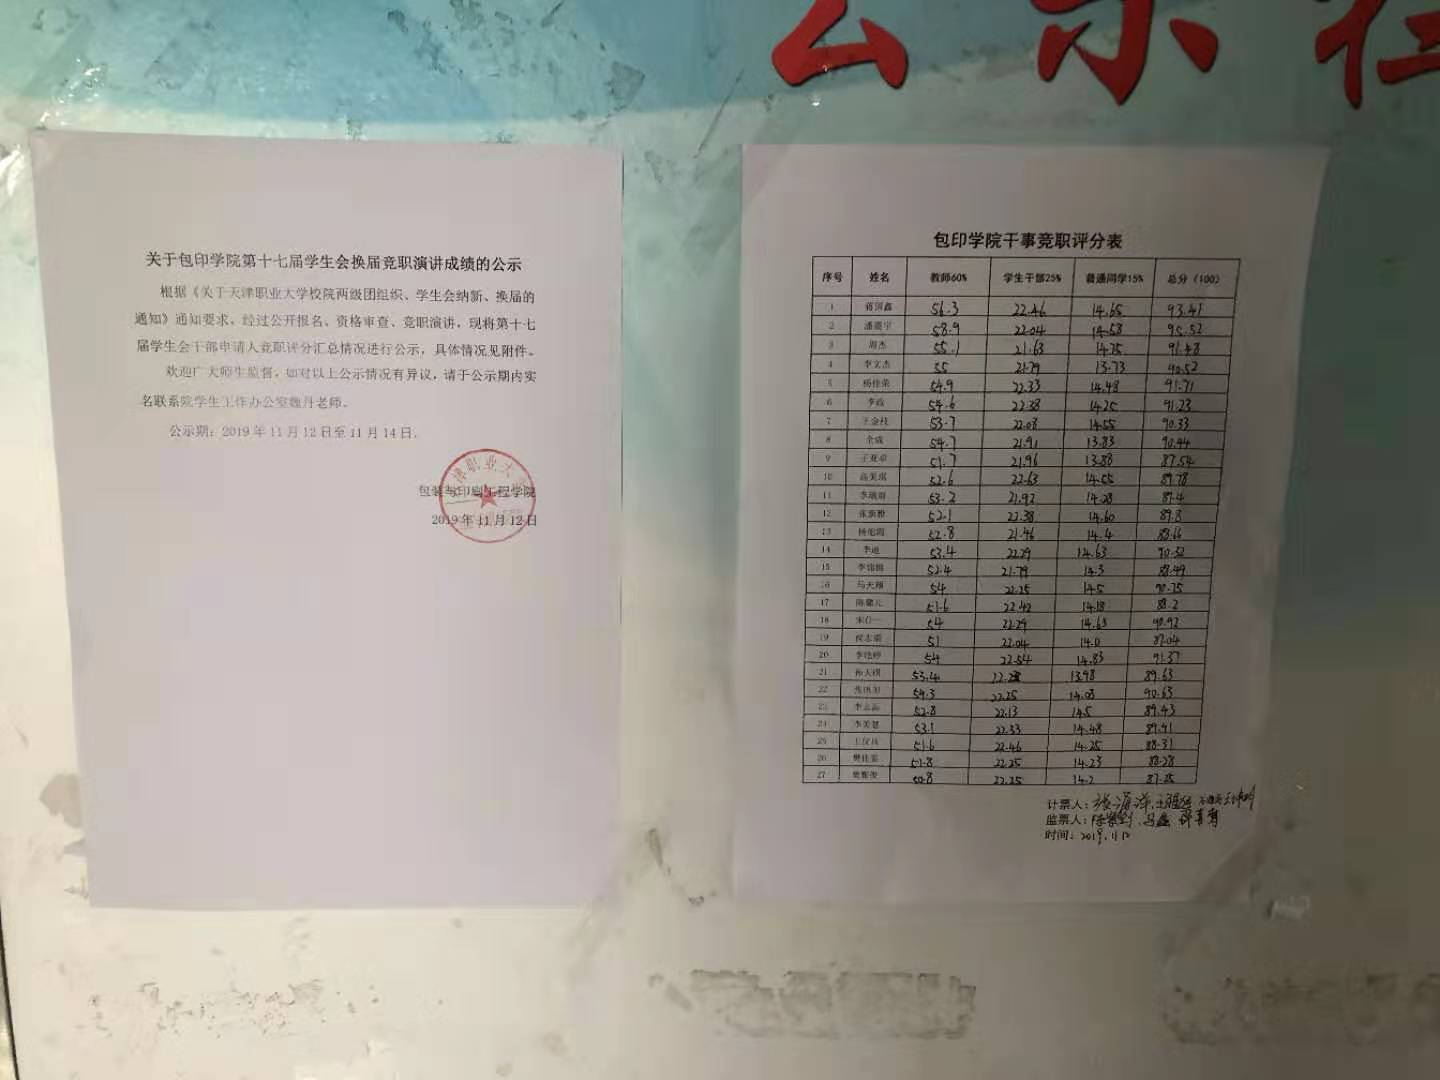 公示栏
关于包印学院第十七届学生会换届竞职演讲成绩的公示
根据《关于天津职业大学校院两级团组织、学生会纳新、换届的
通知》通知要求，经过公开报名、资格审查、竞职演讲，现将第十七
届学生会干部申请人竞职评分汇总情况进行公示，具体情况见附件。
欢迎广大师生监督，如对以上公示情况有异议，请于公示期内实
名联系院学生工作办公室魏丹老师。
公示期：2019年11月12日至11月14日.
包装与印刷工程学院
2019年11月12日
包印学院干事竞职评分表
序号 姓名 教师60% 学生干部25% 普通同学15% 总分（100）
1 蒋国鑫 56.3 22.46 14.65 93.41
2 58.9 22.04 14.58 95.52
3 周杰 55.1 21.63 14.75 91.48
4 李文杰 55 21.79 13.73 90.52
5 杨佳荣 54.9 22.33 14.48 91.71
6 54.6 22.38 14.25 91.23
7 53.7 22.08 14.55 90.33
8 54.7 21.91 13.83 90.44
9 51.7 21.96 13.88 87.54
10 高美琪 52.6 22.63 14.55 89.78
11 53.2 21.92 14.28 89.4
12 52.1 22.38 14.60 89.8
13 52.8 21.46 14.4 88.66
14 李迪 53.4 22.29 14.63 90.32
15 52.4 21.79 14.3 88.49
16 马天翔 54 22.25 14.5 90.75
17 51.6 22.42 14.18 88.2
18 54 22.29 14.63 90.92
19 51 22.04 14.0 87.04
20 54 22.54 14.83 91.37
21 53.4 22.25 13.98 89.63
22 54.3 22.25 14.08 90.63
23 52.8 22.13 14.5 89.43
24 53.1 22.33 14.48 89.91
25 51.6 22.46 14.25 88.31
26 51.8 22.25 14.23 88.28
27 50.8 22.25 14.2 87.25
计票人：
监票人：
时间：2019.11.12